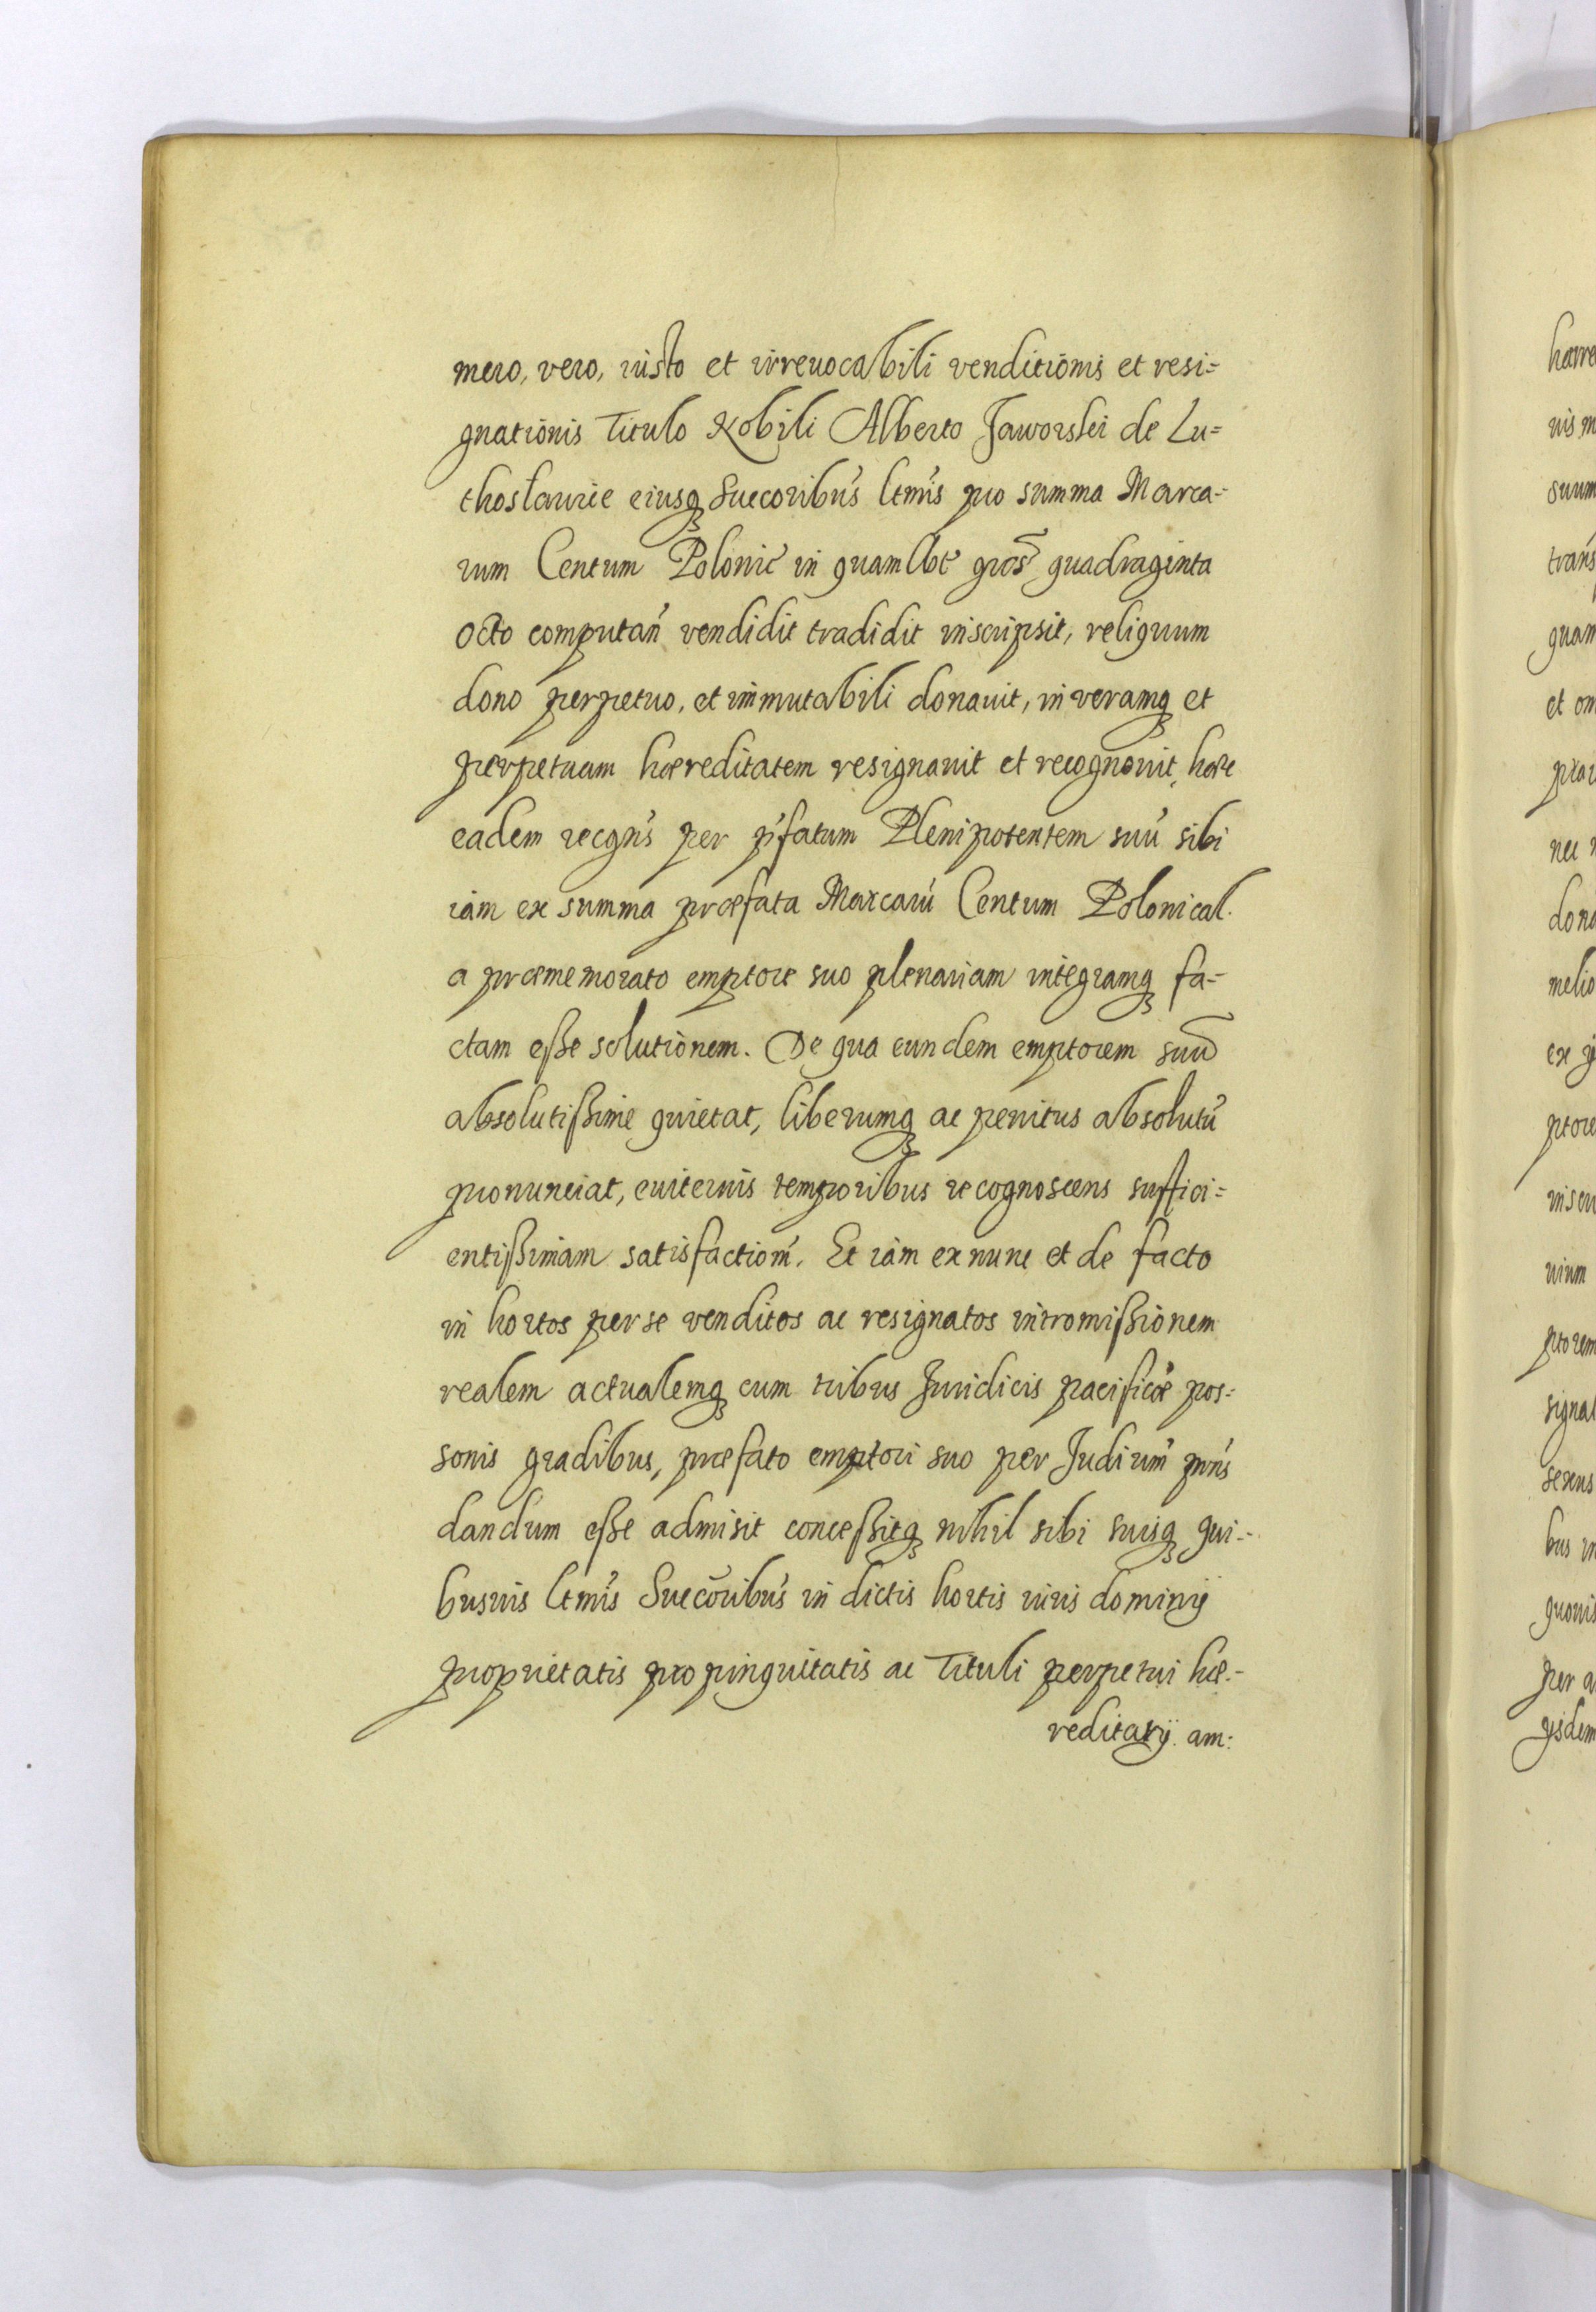 mero, vero, iusto et irreuocabili venditionis et resi=
gnationis Titulo Nobili Alberto Jaworski de Lu=
thoslauice eiusq Succoribus ltmis pro summa Marca=
rum Centum Polonic in quamlibt gros quadraginta
octo computan vendidit tradidit inscripsit, reliquum
dono perpetuo, et immutabili donauit, in veramq et
perpetuam hæreditatem resignauit et recognouit, hocce
eadem recgns per pfatum Plenipotentem suu sibi
iam ex summa præfata Marcaru Centum Polonical.
a præmemorato emptore suo plenariam integramq fa=
ctam eße solutionem. De qua eundem emptorem suu
absolutißime quietat, liberumq ac penitus absolutu
pronunciat, euiternis temporibus recognoscens suffici=
entißimam satisfactiom. Et iam ex nunc et de facto
in hortos per se venditos ac resignatos intromißionem
realem actualemq cum tribus Juridicis pacificæ pos=
sonis gradibus, præfato emptori suo per Judium pns
dandum eße admisit conceßitq nihil sibi suisq qui=
busuis ltmis Succoribus in dictis hortis iuris dominij
proprietatis propinquitatis ac Tituli perpetui hæ=
reditarij. am:
harre
uis m
suum
trans
quam
et om
nec
dona
melio
ex
ptore
inscri
uium
ptorem
signat
sexus
bus in
quouis
per a
ijsdem